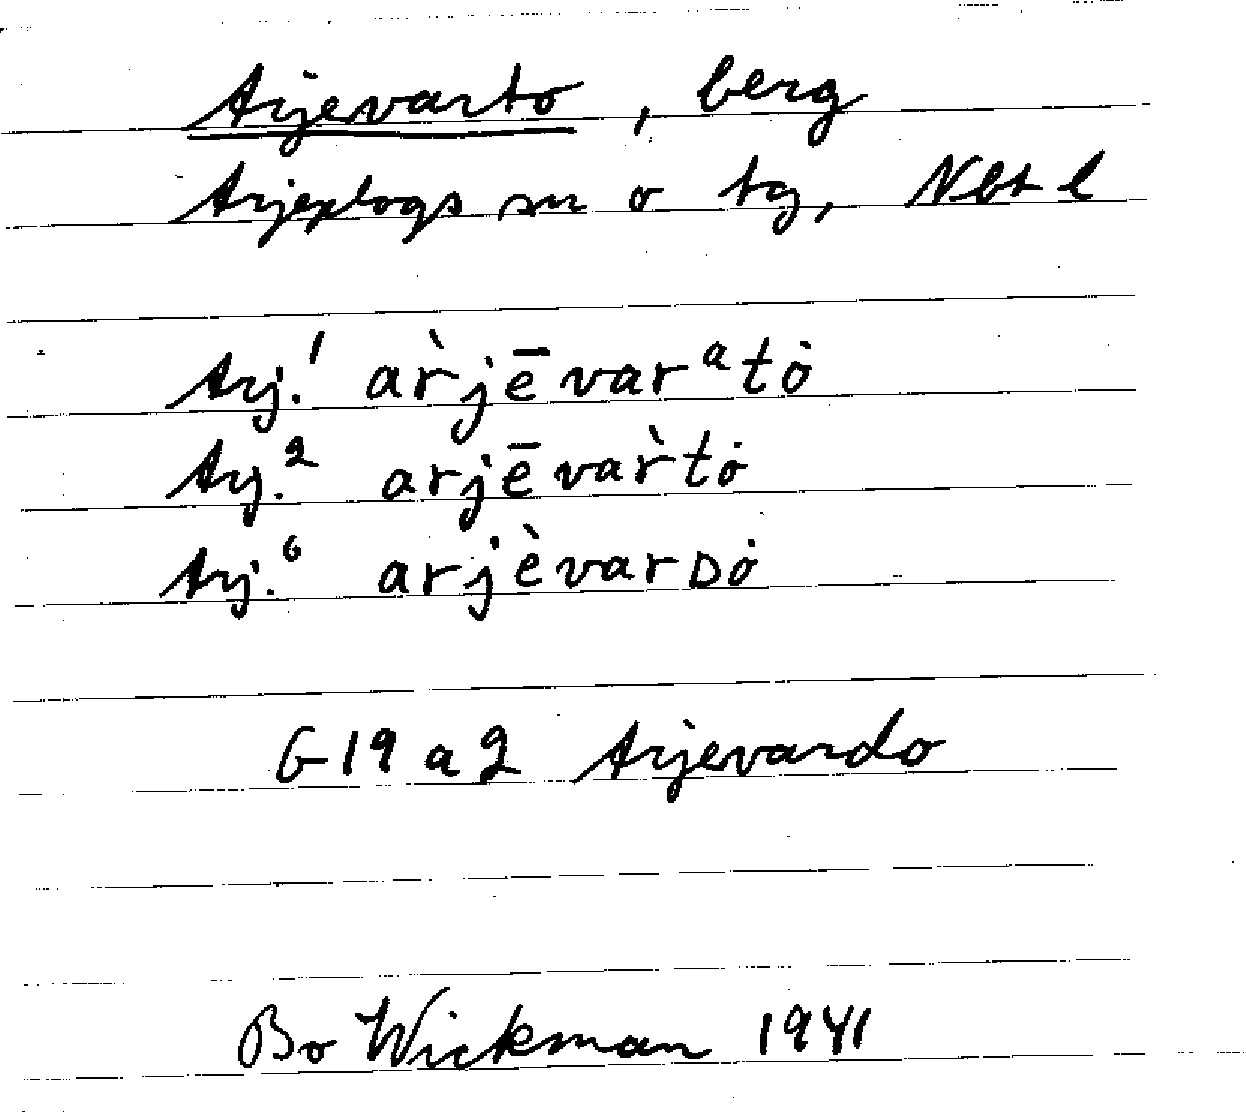 Arjevarto, berg
Arjeplogs sn o tg, Nbt l
Arj.¹ ar̀jēvarᵃtȯ
Arj.² arjēvar̀tȯ
Arj.⁶ arjèvarᴅȯ
G19 a 2 Arjevardo
Bo Wickman 1941